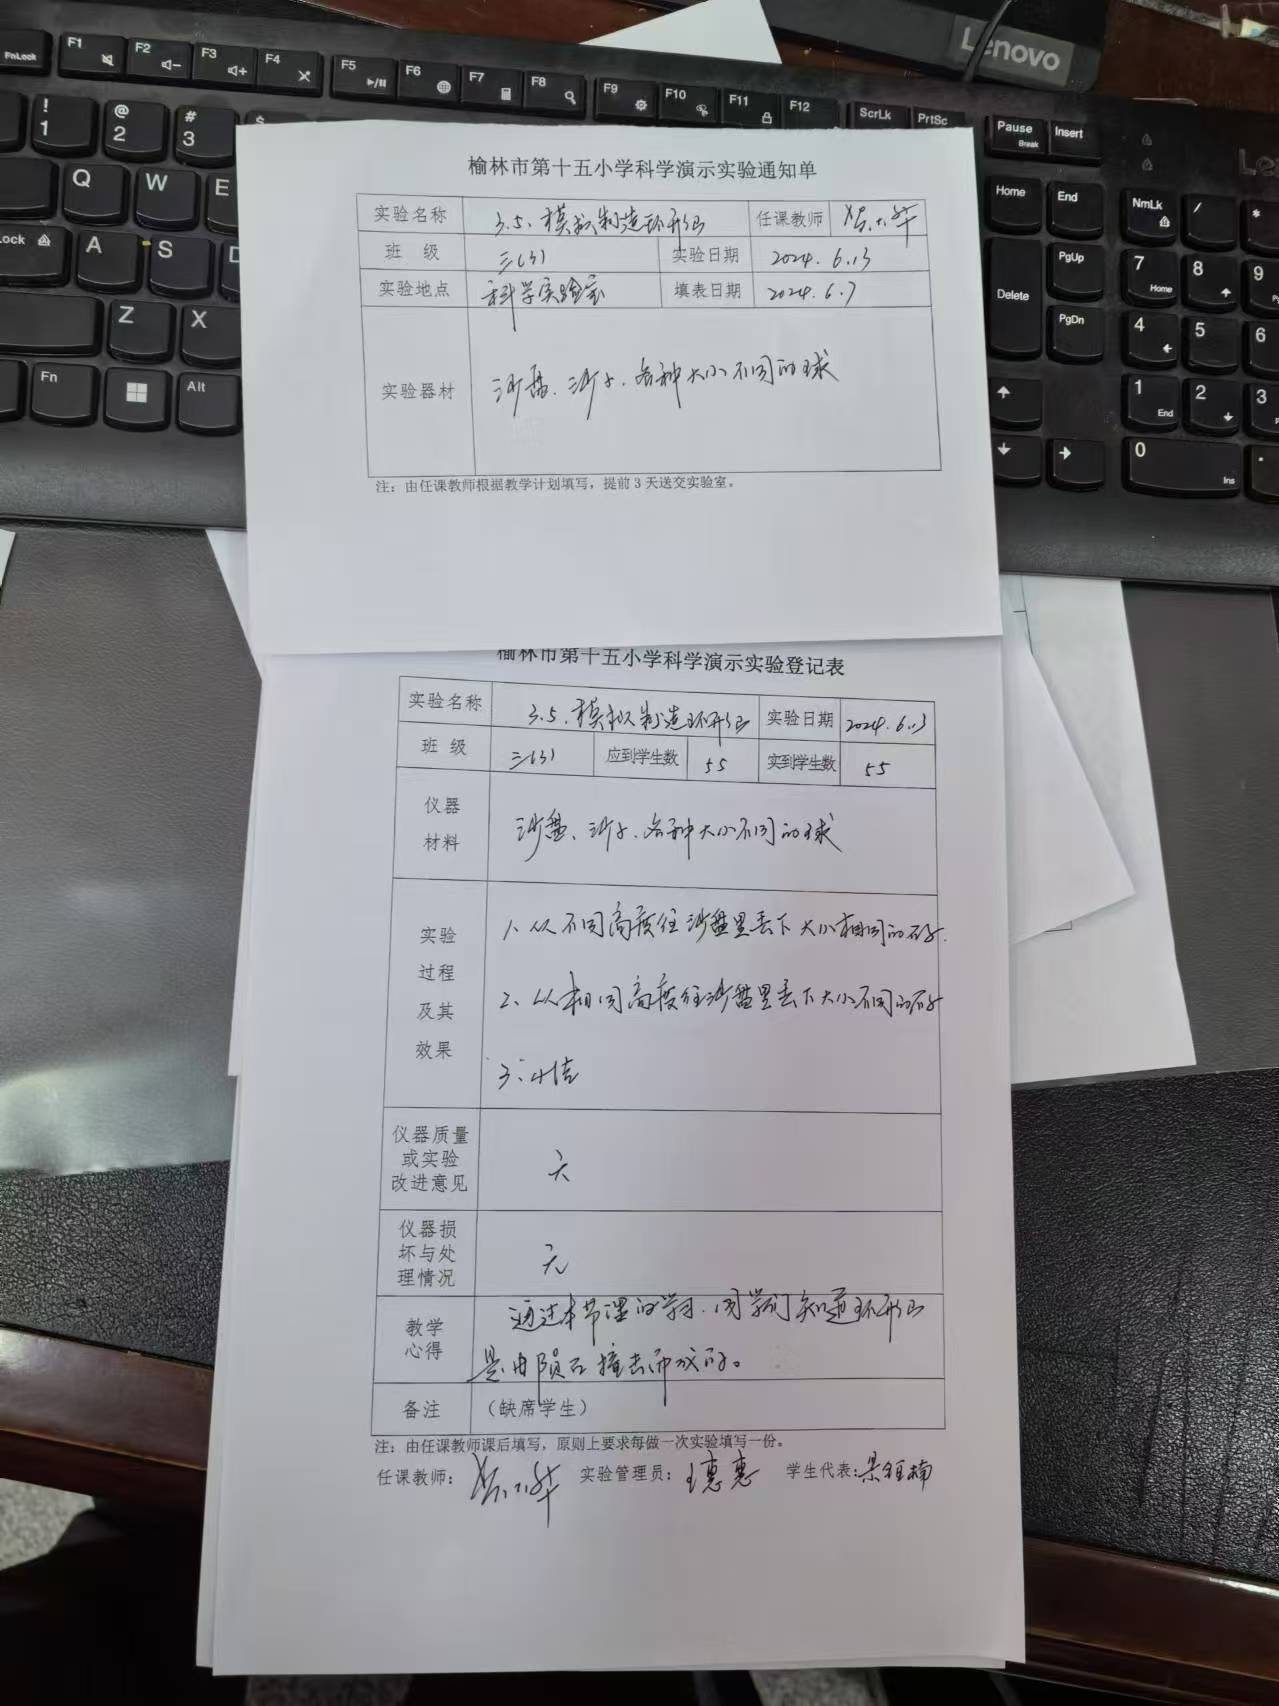 Lenovo
FnLock F1 F2 F3 F4 F5 F6 F7 F8 F9 F10 F11 F12 ScrLk PrtSc Pause Break Insert
! 1 @ 2 # 3 $
Q W E Home End NmLk / *
Lock A S D PgUp 7 Home 8 9
Delete
Z X PgDn 4 5 6
Fn Alt 1 End 2 3
0 Ins .
榆林市第十五小学科学演示实验通知单
实验名称 3.5.模拟制造环形山 任课教师
班 级 三(3) 实验日期 2024.6.13
实验地点 科学实验室 填表日期 2024.6.7
实验器材 沙盘、沙子、各种大小不同的球
注：由任课教师根据教学计划填写，提前3天送交实验室。
榆林市第十五小学科学演示实验登记表
实验名称 3.5.模拟制造环形山 实验日期 2024.6.13
班 级 三(3) 应到学生数 55 实到学生数 55
仪器
材料
沙盘、沙子、各种大小不同的球
实验
过程
及其
效果
1、从不同高度往沙盘里丢下大小相同的石子.
2、从相同高度往沙盘里丢下大小不同的石子
3、小结
仪器质量
或实验
改进意见
无
仪器损
坏与处
理情况
无
教学
心得
通过本节课的学习,同学们知道环形山
是由陨石撞击而成的。
备注 （缺席学生）
注：由任课教师课后填写，原则上要求每做一次实验填写一份。
任课教师： 实验管理员：王惠惠 学生代表：